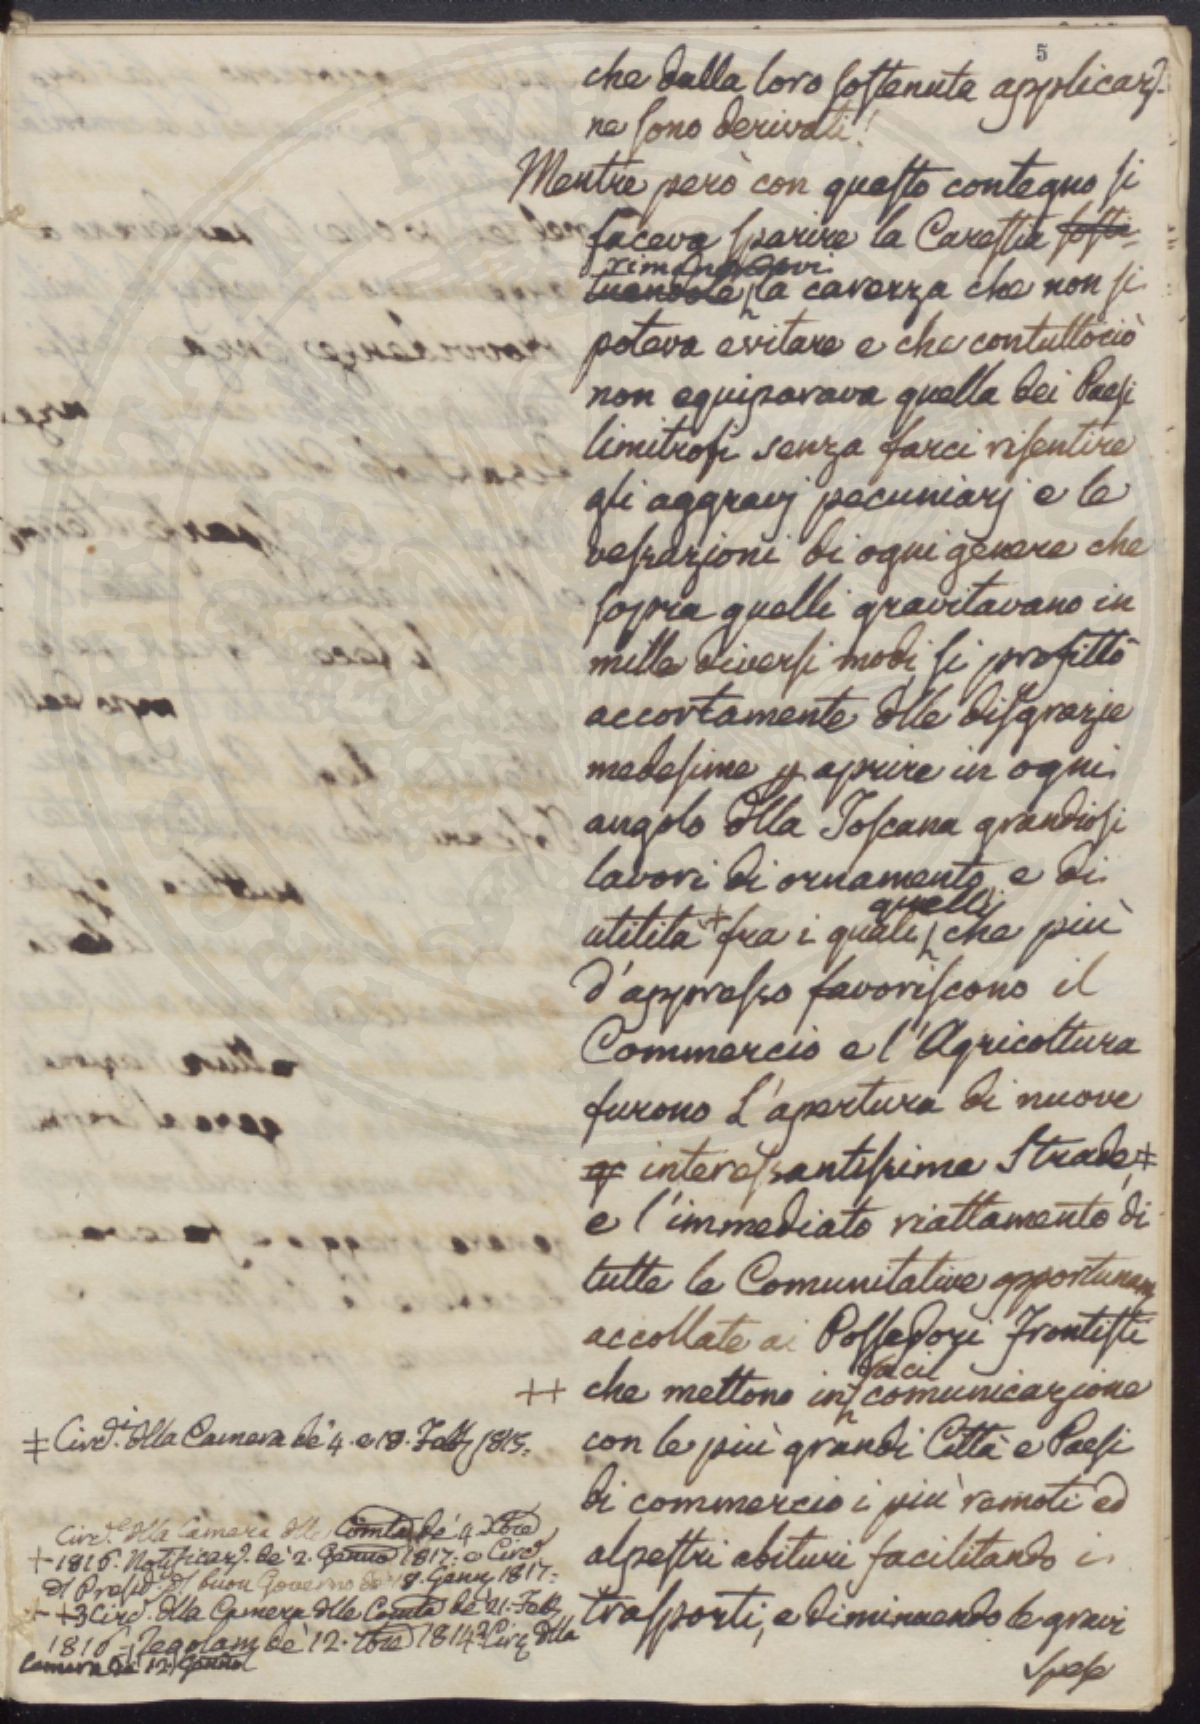 5
che dalla loro sostenuta applicaz.
ne sono derivati!
Mentre però con questo contegno si
faceva sparire la Carestia sosti-
rimanendovi
tuendole la carezza che non si
poteva evitare e che contuttociò
non equiparava quella dei Paesi
limitrofi senza farci risentire
gli aggravj pecuniarj e le
vessazioni di ogni genere che
sopra quelli gravitavano in
mille diversi modi, si profittò
accortamente dlle disgrazie
medesime p aprire in ogni
angolo dlla Toscana grandiosi
lavori di ornamento, e di
quelli
utilità + fra i quali che più
d'appresso favoriscono il
Commercio e l'Agricoltura
furono l'apertura di nuove
interessantissime Strade, ‡
e l'immediato riattamento di
tutte le Comunitative opportunam
accollate ai Possessori Frontisti
facil
++ che mettono in comunicazione
con le più grandi Città e Paesi
di commercio i più remoti ed
alpestri abituri facilitando i
trasporti, e diminuendo le gravi
spese
‡ Circ. dlla Camera de' 4. e 18. Febb 1815.
Circ. dlla Camera dlle Comtà de' 4 Xbre
+ 1816. Notificaz. de' 2. Genno 1817. e Circ
dl Presid. dl buon Governo de' 18. Genn 1817.
++ 3 Circ. dlla Camera dlle Comtà de' 21. Febb
1816. Regolam de' 12. 7bre 1814. Circ dlla
Camera de' 12. Genno